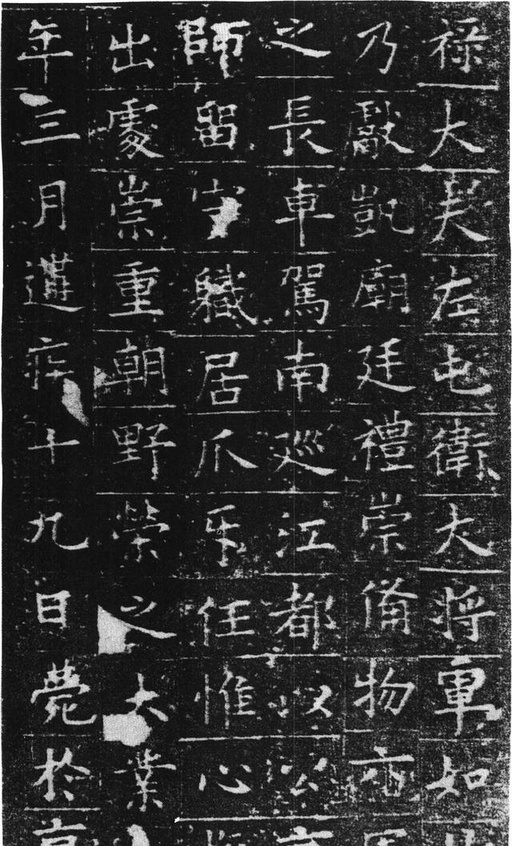 祿大夫左屯衛大将軍如
乃獻凱廟廷禮崇備物
之長車駕南巡江都以公
師留守職居爪牙任惟心
出處崇重朝野榮之大業
年三月遘疾十九日薨於